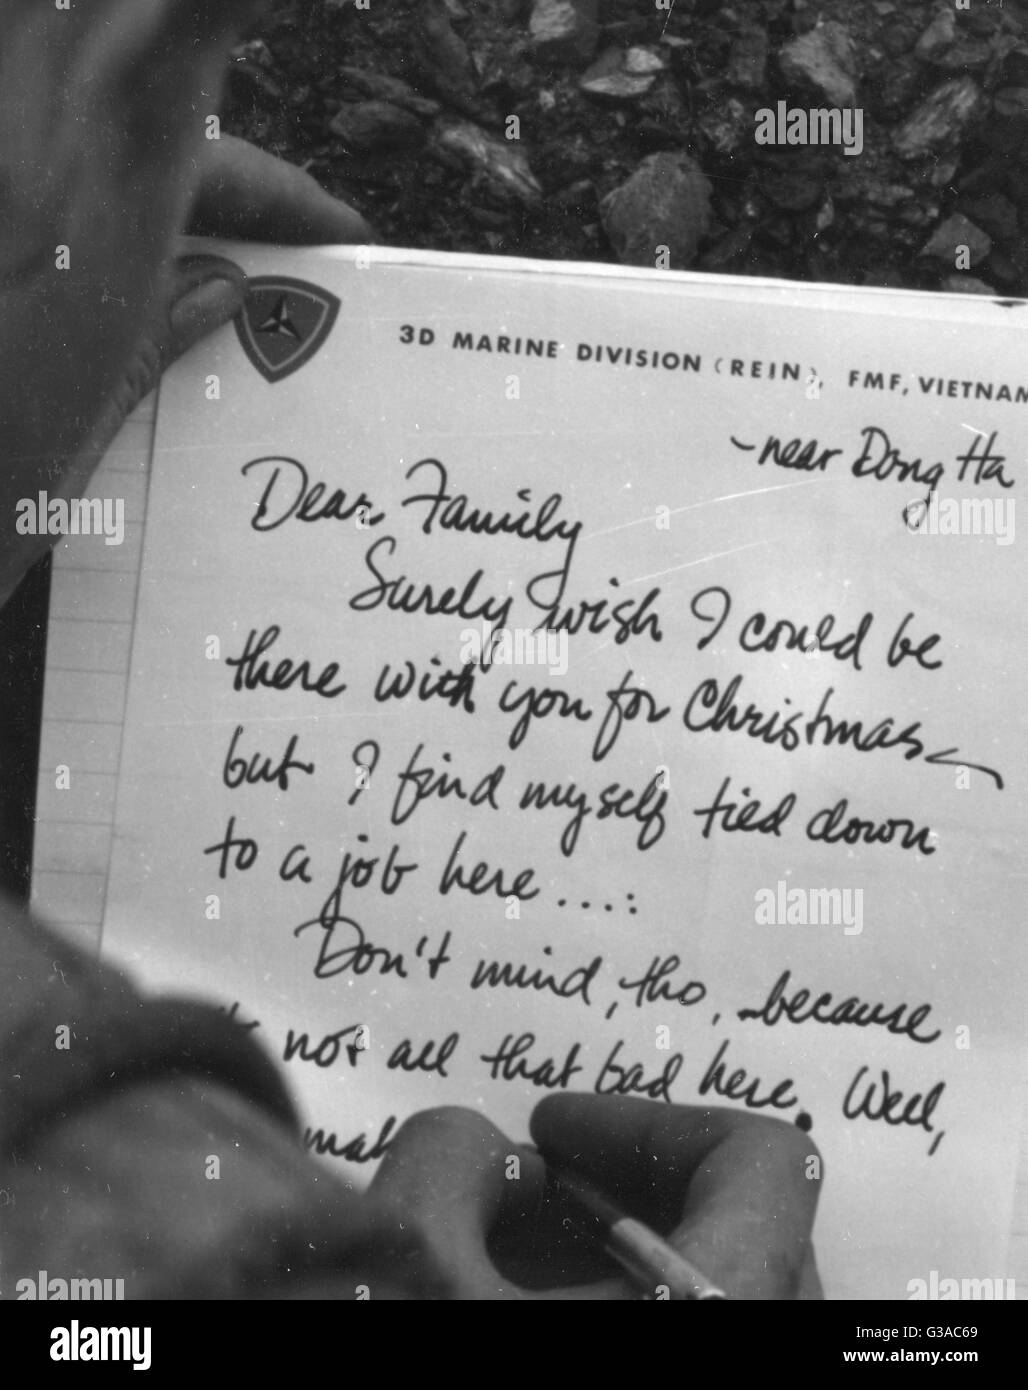 3D MARINE DIVISION (REIN), FMF, VIETNAM
~near Dong Ha
Dear Family
Surely wish I could be
there with you for Christmas
but I find myself tied down
to a job here ....:
Don't mind, tho, because
not all that bad here. Well,
alamy
Image ID: G3AC69
www.alamy.com